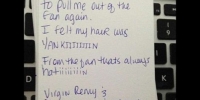 to pull me out of the
fan again.
I felt my hair was
YANKIIIIIIIN
From the fan thats always
hotiiiiiiiN
Virgin Remy is
D
K